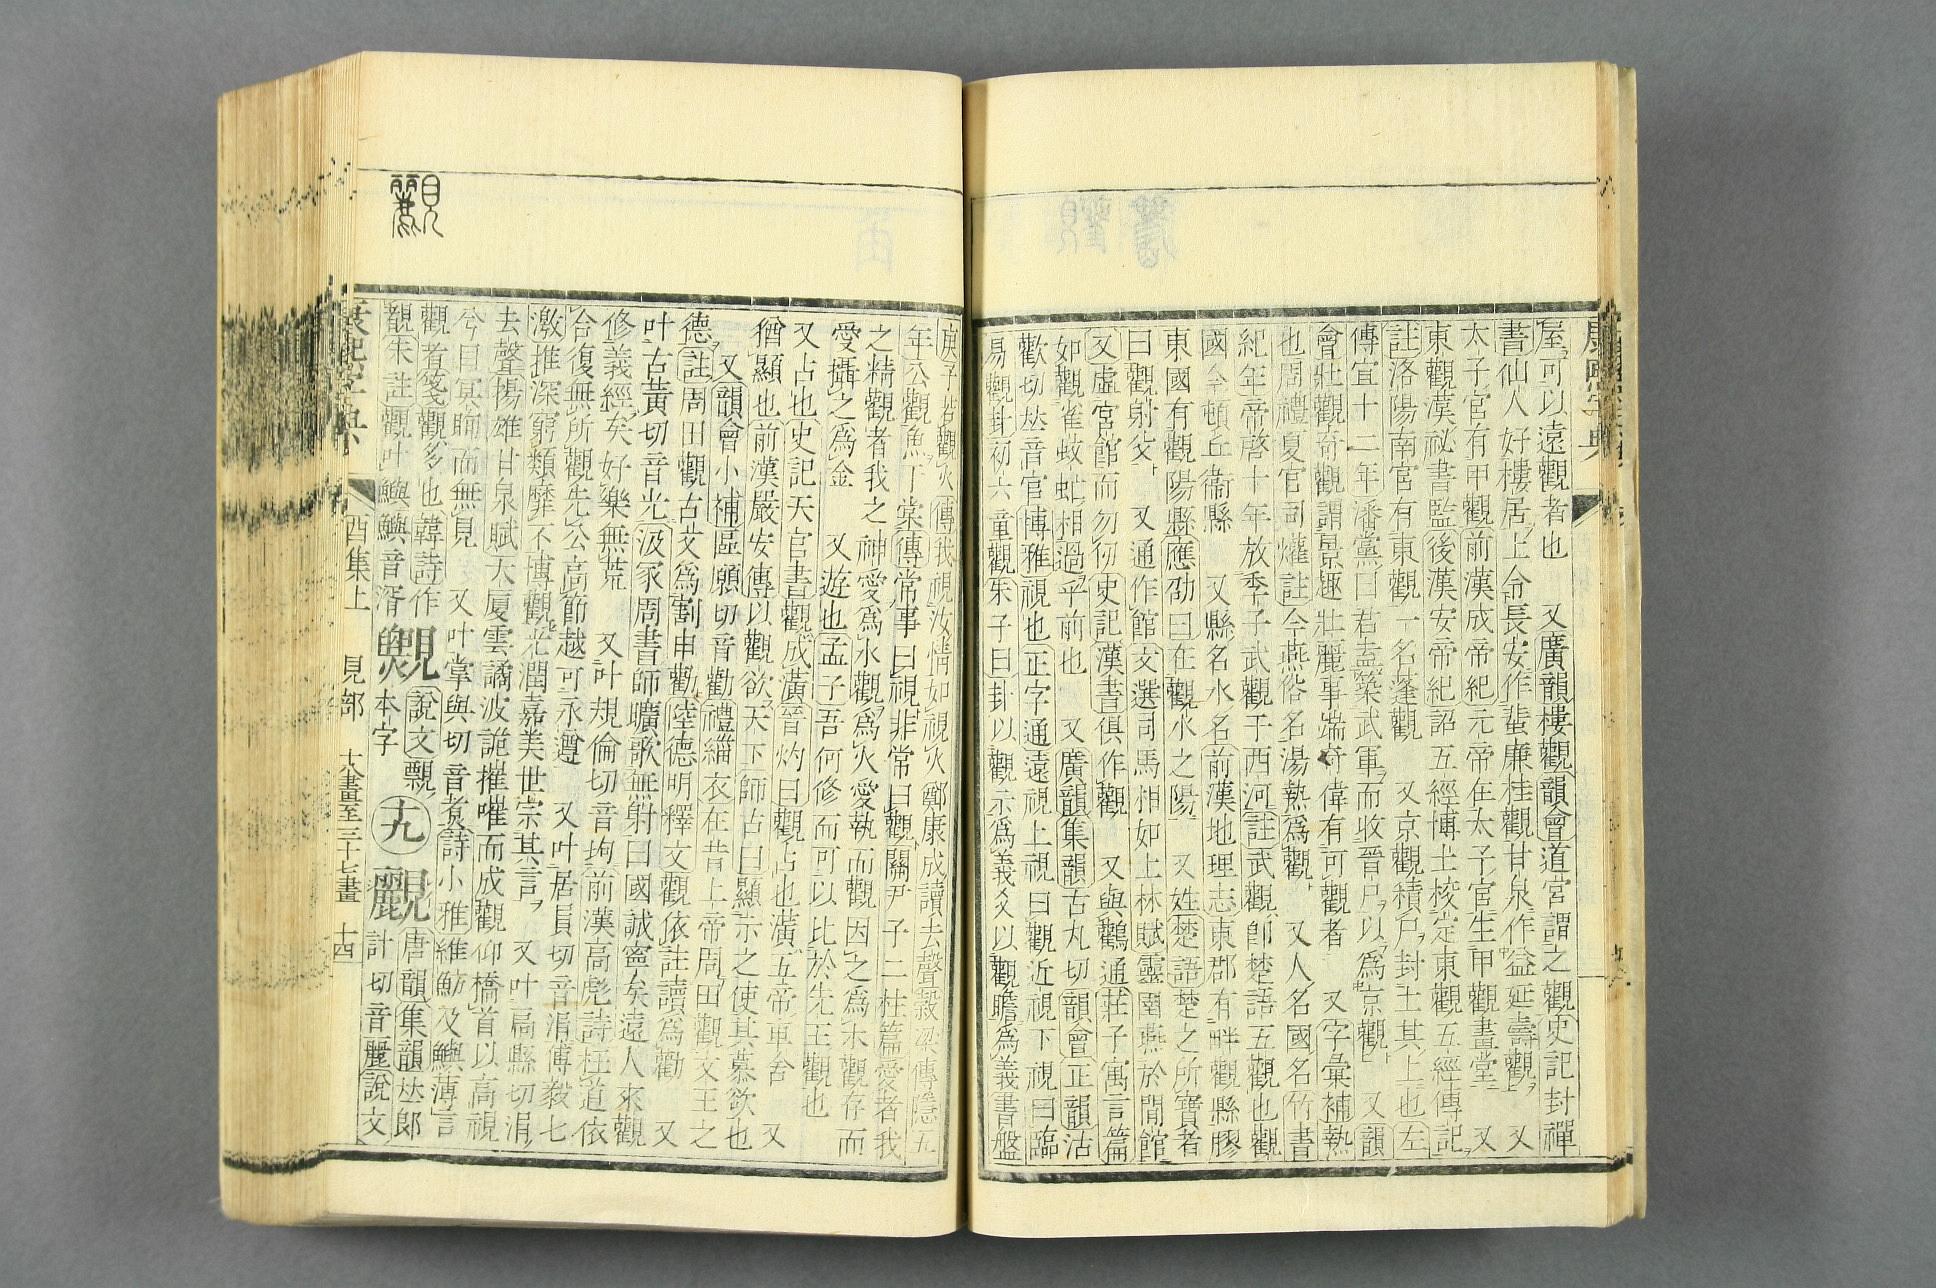 康熙字典
屋可以遠觀者也 又廣韻樓觀韻會道宮謂之觀史記封禪
書仙人好樓居上令長安作蜚廉桂觀甘泉作益延壽觀 又
太子宮有甲觀前漢成帝紀元帝在太子宮生甲觀畫堂 又
東觀漢祕書監後漢安帝紀詔五經博士校定東觀五經傳記
註洛陽南宮有東觀一名蓬觀 又京觀積尸封土其上也左
傳宣十二年潘黨曰君盍築武軍而收晉尸以爲京觀 又韻
會壯觀奇觀謂景趣壯麗事端奇偉有可觀者 又字彙補熱
也周禮夏官司爟註今燕俗名湯熱爲觀 又人名國名竹書
紀年帝啓十年放季子武觀于西河註武觀卽楚語五觀也觀
國今頓丘衞縣 又縣名水名前漢地理志東郡有畔觀縣膠
東國有觀陽縣應劭曰在觀水之陽 又姓楚語楚之所寶者
曰觀射父 又通作館文選司馬相如上林賦靈圄燕於閒館
又虛宮館而勿仞史記漢書俱作觀 又與鸛通莊子寓言篇
如觀雀蚊虻相過乎前也 又廣韻集韻古丸切韻會正韻沽
歡切𠀤音官博雅視也正字通遠視上視曰觀近視下視曰臨
易觀卦初六童觀朱子曰卦以觀示爲義爻以觀瞻爲義書盤
庚予若觀火傳我視汝情如視火鄭康成讀去聲穀梁傳隱五
年公觀魚于棠傳常事曰視非常曰觀關尹子二柱篇愛者我
之精觀者我之神愛爲水觀爲火愛執而觀因之爲木觀存而
愛攝之爲金 又遊也孟子吾何修而可以比於先王觀也
又占也史記天官書觀成潢晉灼曰觀占也潢五帝車舍 又
猶顯也前漢嚴安傳以觀欲天下師古曰顯示之使其慕欲也
又韻會小補區願切音勸禮緇衣在昔上帝周田觀文王之
德註周田觀古文爲割申勸陸德明釋文觀依註讀爲勸 又
叶古黃切音光汲冢周書師曠歌無射曰國誠寧矣遠人來觀
修義經矣好樂無荒 又叶規倫切音均前漢高彪詩枉道依
合復無所觀先公高節越可永遵 又叶居員切音涓傅毅七
激推深窮類靡不博觀光潤嘉美世宗其言 又叶扃縣切涓
去聲揚雄甘泉賦大厦雲譎波詭摧嗺而成觀仰橋首以高視
兮目冥眴而無見 又叶掌與切音煮詩小雅維魴及鱮薄言
觀者箋觀多也韓詩作覩朱註觀叶鱮鱮音湑
覞本字說文覞
十九
覼唐韻集韻𠀤郎計切音麗說文
康熙字典 酉集上 見部 十八畫至三十七畫 十四